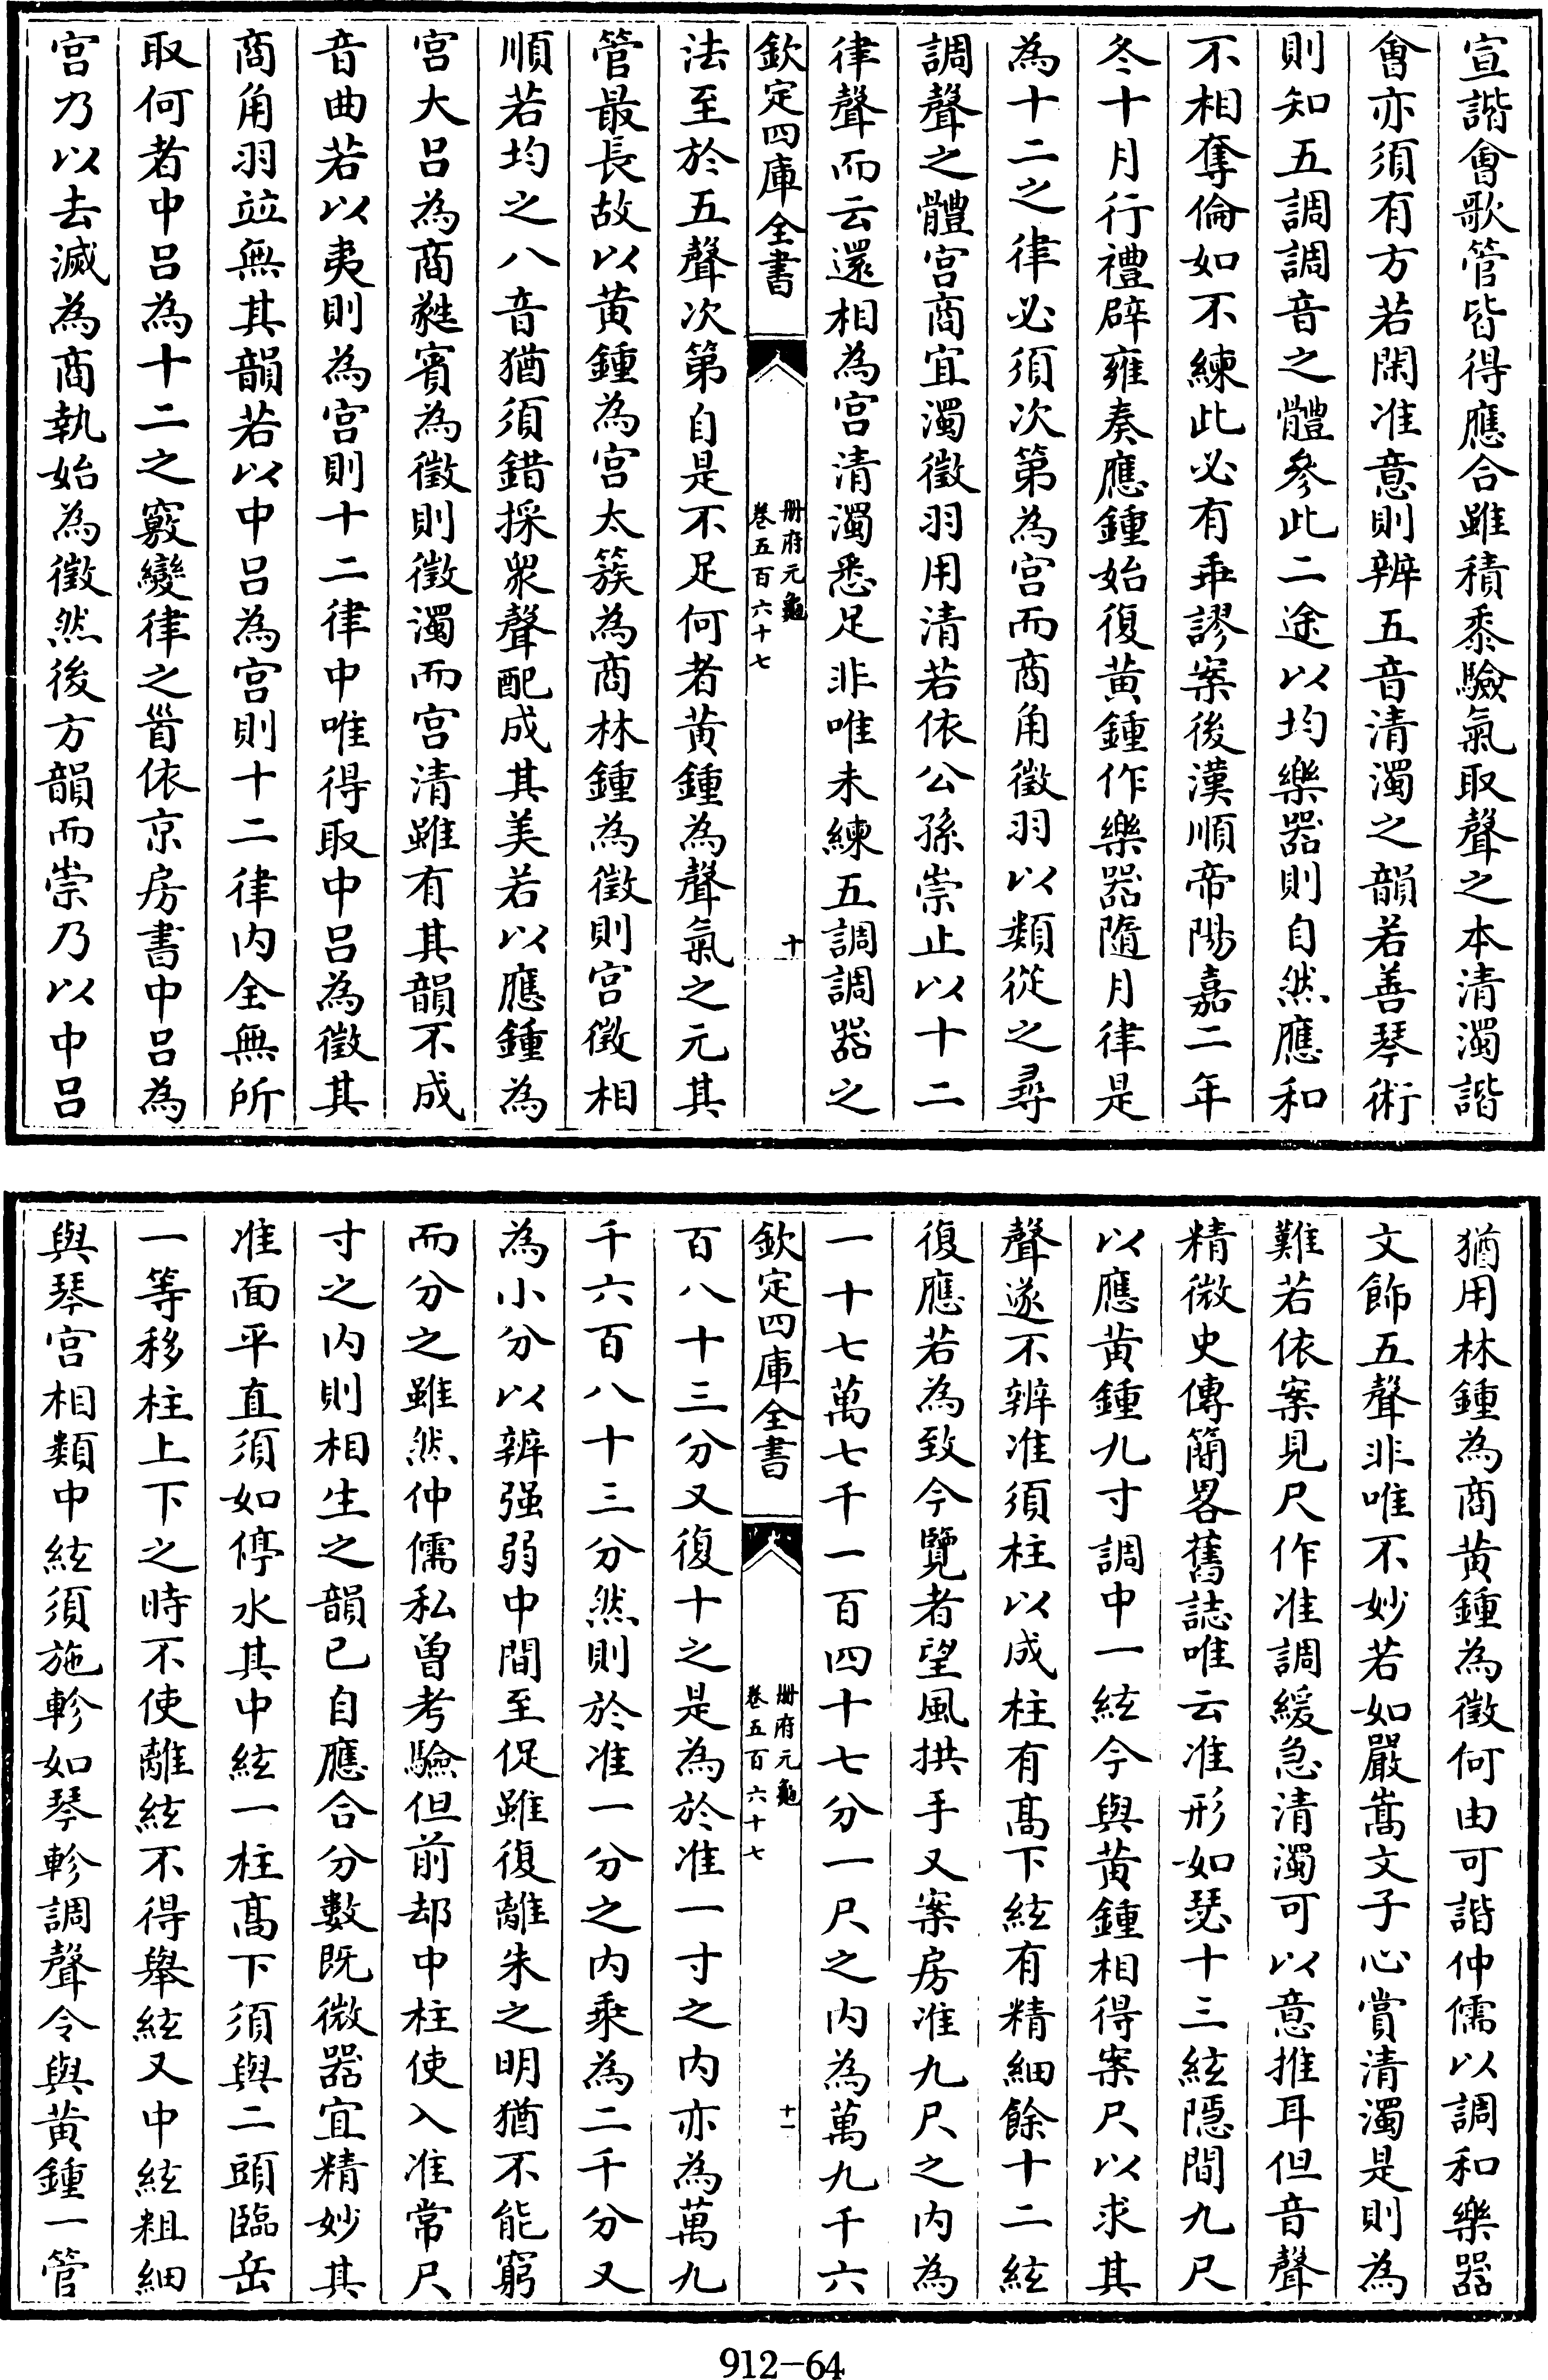 宣諧會歌管皆得應合雖積黍驗氣取聲之本清濁諧
會亦須有方若閑准意則辨五音清濁之韻若善琴術
則知五調調音之體參此二途以均樂器則自然應和
不相奪倫如不練此必有乖謬案後漢順帝陽嘉二年
冬十月行禮辟雍奏應鍾始復黃鍾作樂器隨月律是
為十二之律必須次第為宮而商角徵羽以類從之尋
調聲之體宮商宜濁徵羽用清若依公孫崇止以十二
律聲而云還相為宮清濁悉足非唯未練五調調器之
欽定四庫全書
冊府元龜
卷五百六十七
十
法至於五聲次第自是不足何者黃鍾為聲氣之元其
管最長故以黃鍾為宮太簇為商林鍾為徵則宮徵相
順若均之八音猶須錯採衆聲配成其美若以應鍾為
宮大呂為商蕤賓為徵則徵濁而宮清雖有其韻不成
音曲若以夷則為宮則十二律中唯得取中呂為徵其
商角羽竝無其韻若以中呂為宮則十二律內全無所
取何者中呂為十二之竅變律之首依京房書中呂為
宮乃以去滅為商執始為徵然後方韻而崇乃以中呂
猶用林鍾為商黃鍾為徵何由可諧仲儒以調和樂器
文飾五聲非唯不妙若如嚴嵩文子心賞清濁是則為
難若依案見尺作准調緩急清濁可以意推耳但音聲
精微史傳簡畧舊誌唯云准形如瑟十三絃隱間九尺
以應黃鍾九寸調中一絃今與黃鍾相得案尺以求其
聲遂不辨准須柱以成柱有高下絃有精細餘十二絃
復應若為致今覽者望風拱手又案房准九尺之內為
一十七萬七千一百四十七分一尺之內為萬九千六
欽定四庫全書
冊府元龜
卷五百六十七
十一
百八十三分又復十之是為於准一寸之內亦為萬九
千六百八十三分然則於准一分之內乘為二千分又
為小分以辨强弱中間至促雖復離朱之明猶不能窮
而分之雖然仲儒私曾考驗但前却中柱使入准常尺
寸之內則相生之韻已自應合分數既微器宜精妙其
准面平直須如停水其中絃一柱高下須與二頭臨岳
一等移柱上下之時不使離絃不得舉絃又中絃粗細
與琴宮相類中絃須施軫如琴軫調聲令與黃鍾一管
912-64